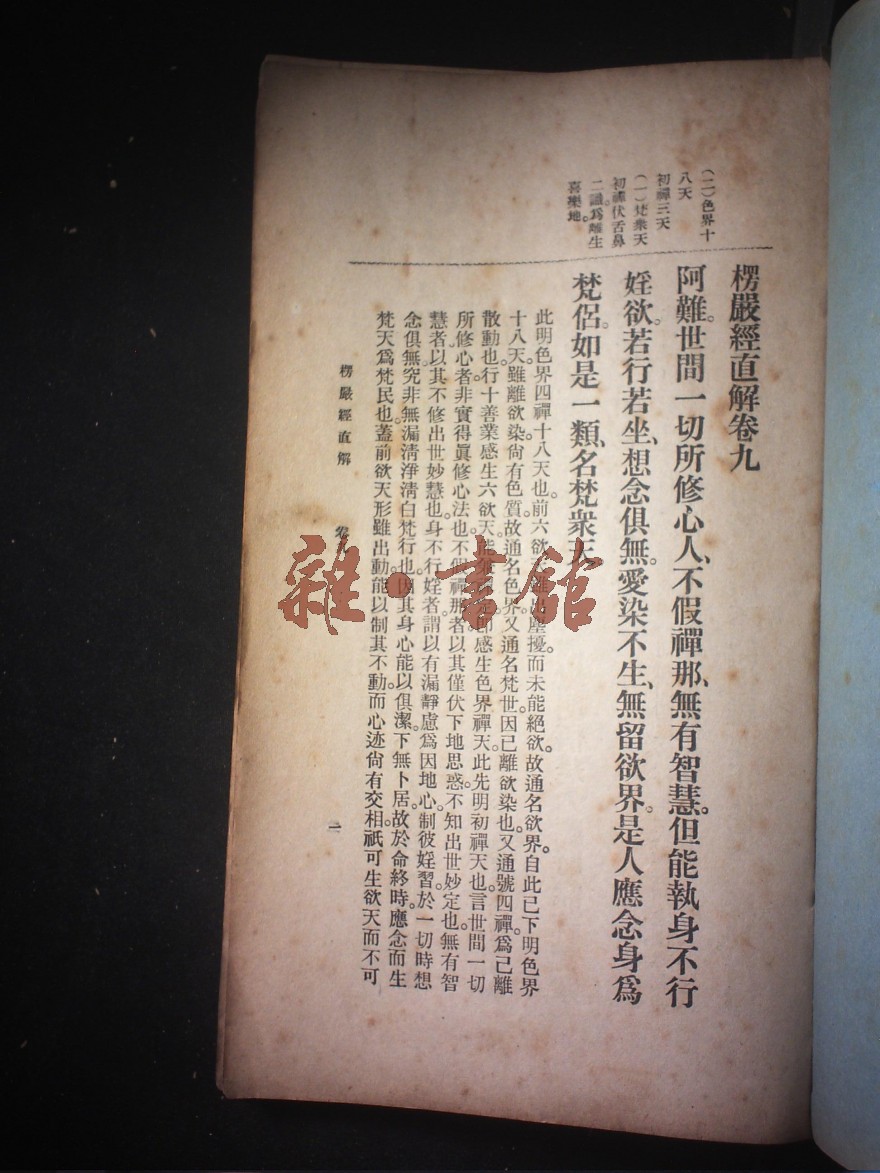 (二)色界十
八天
初禪三天
(一)梵衆天
初禪伏舌鼻
二識。爲離生
喜樂地。
楞嚴經直解卷九
阿難。世間一切所修心人、不假禪那、無有智慧。但能執身不行
婬欲。若行若坐、想念俱無。愛染不生、無留欲界。是人應念身爲
梵侶。如是一類、名梵衆天。
此明色界四禪十八天也。前六欲天雖出塵擾。而未能絕欲。故通名欲界。自此已下明色界
十八天。雖離欲染。尙有色質。故通名色界。又通名梵世。因已離欲染也。又通號四禪。爲已離
散動也。行十善業感生六欲天。能兼禪定即感生色界禪天。此先明初禪天也。言世間一切
所修心者。非實得眞修心法也。不假禪那者。以其僅伏下地思惑。不知出世妙定也。無有智
慧者。以其不修出世妙慧也。身不行婬者。謂以有漏靜慮爲因地心。制彼婬習。於一切時想
念俱無。究非無漏淸淨淸白梵行也。因其身心能以俱潔。下無卜居。故於命終時。應念而生
梵天爲梵民也。蓋前欲天形雖出動。能以制其不動。而心迹尙有交相。祇可生欲天而不可
楞嚴經直解 卷九 一
雜·書館